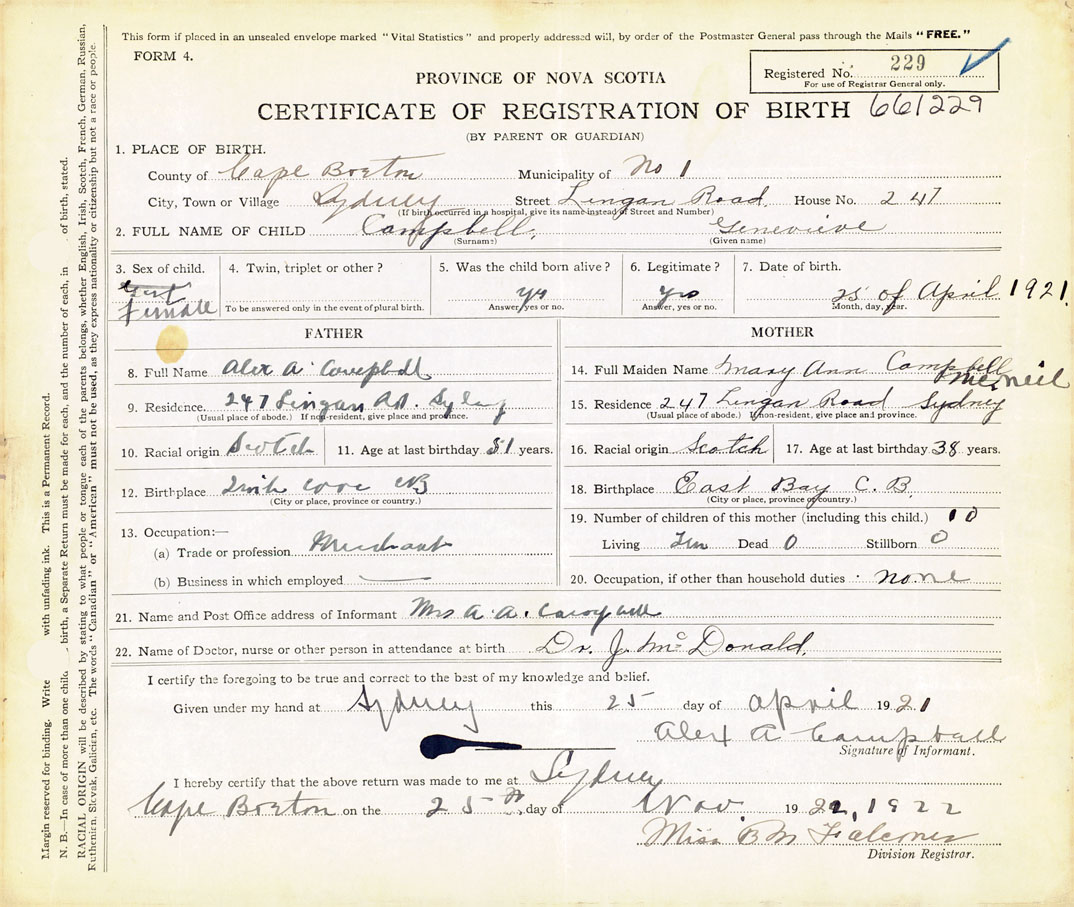 This form if placed in an unsealed envelope marked "Vital Statistics" and properly addressed will, by order of the Postmaster General pass through the Mails "FREE."
FORM 4.
Registered No. 229
For use of Registrar General only.
PROVINCE OF NOVA SCOTIA
CERTIFICATE OF REGISTRATION OF BIRTH 661229
(BY PARENT OR GUARDIAN)
1. PLACE OF BIRTH.
County of Cape Breton Municipality of No 1
City, Town or Village Sydney Street Lingan Road House No. 247
(If birth occurred in a hospital, give its name instead of Street and Number)
2. FULL NAME OF CHILD Campbell, Genevieve
(Surname) (Given name)
3. Sex of child. 4. Twin, triplet or other? 5. Was the child born alive? 6. Legitimate? 7. Date of birth.
Female yes yes 25 of April 1921
To be answered only in the event of plural birth. Answer, yes or no. Answer, yes or no. Month, day, year.
FATHER
8. Full Name Alex A. Campbell
9. Residence. 247 Lingan Rd. Sydney
(Usual place of abode.) If non-resident, give place and province.
10. Racial origin Scotch 11. Age at last birthday 51 years.
12. Birthplace Irish Cove CB
(City or place, province or country.)
13. Occupation:—
(a) Trade or profession Merchant
(b) Business in which employed —
MOTHER
14. Full Maiden Name Mary Ann Campbell
McNeil
15. Residence 247 Lingan Road Sydney
(Usual place of abode.) If non-resident, give place and province.
16. Racial origin Scotch 17. Age at last birthday 38 years.
18. Birthplace East Bay C. B.
(City or place, province or country.)
19. Number of children of this mother (including this child.) 10
Living Ten Dead 0 Stillborn 0
20. Occupation, if other than household duties none
21. Name and Post Office address of Informant Mrs A. A. Campbell
22. Name of Doctor, nurse or other person in attendance at birth Dr. J. McDonald.
I certify the foregoing to be true and correct to the best of my knowledge and belief.
Given under my hand at Sydney this 25 day of April 1921
Alex A Campbell
Signature of Informant.
I hereby certify that the above return was made to me at Sydney
Cape Breton on the 25th day of Nov. 1922, 1922
Miss B M Falconer
Division Registrar.
Margin reserved for binding. Write with unfading ink. This is a Permanent Record.
N. B.—In case of more than one child birth, a Separate Return must be made for each, and the number of each, in of birth, stated.
RACIAL ORIGIN will be described by stating to what people or tongue each of the parents belongs, whether English, Irish, Scotch, French, German, Russian,
Ruthenian, Slovak, Galician, etc. The words "Canadian" or "American" must not be used, as they express nationality or citizenship but not a race or people.